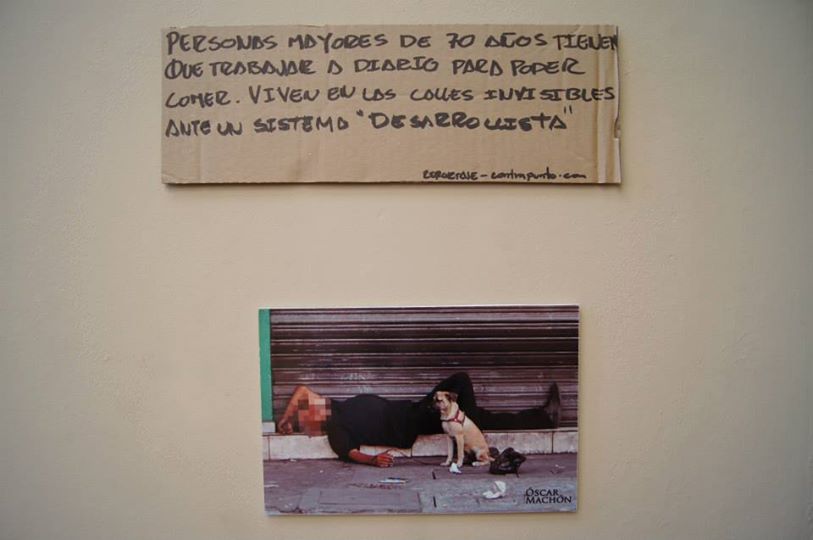 PERSONAS MAYORES DE 70 AÑOS TIENEN
QUE TRABAJAR A DIARIO PARA PODER
COMER. VIVEN EN LAS CALLES INVISIBLES
ANTE UN SISTEMA "DESARROLLISTA"
REPORTAJE - contrapunto.com
ÓSCAR
MACHÓN